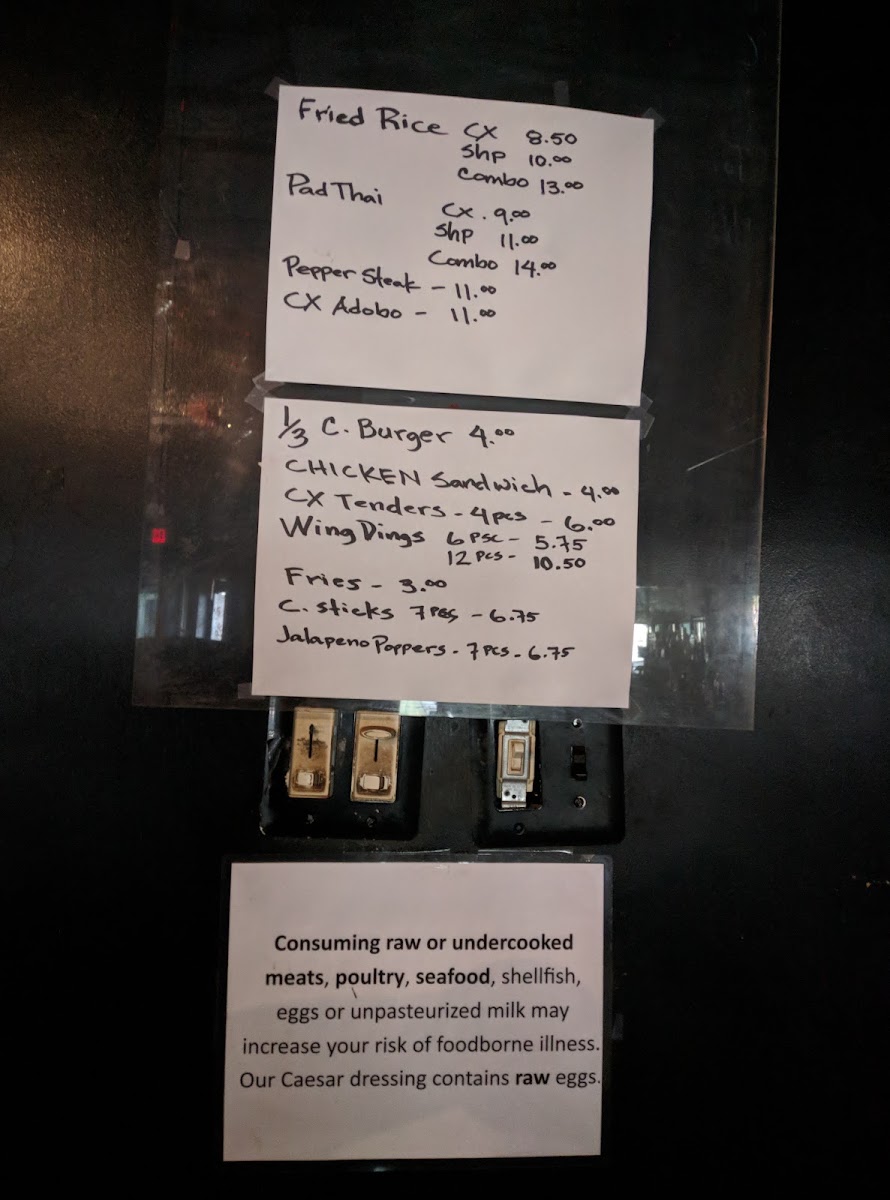 Fried Rice CX 8.50
Shp 10.00
Combo 13.00
Pad Thai
CX. 9.00
Shp 11.00
Combo 14.00
Pepper Steak - 11.00
CX Adobo - 11.00
1/3 C. Burger 4.00
CHICKEN Sandwich - 4.00
CX Tenders - 4 pcs - 6.00
Wing Dings 6 PSC - 5.75
12 Pcs - 10.50
Fries - 3.00
C. sticks 7 PCS - 6.75
Jalapeno Poppers - 7 PCS - 6.75
Consuming raw or undercooked
meats, poultry, seafood, shellfish,
eggs or unpasteurized milk may
increase your risk of foodborne illness.
Our Caesar dressing contains raw eggs.